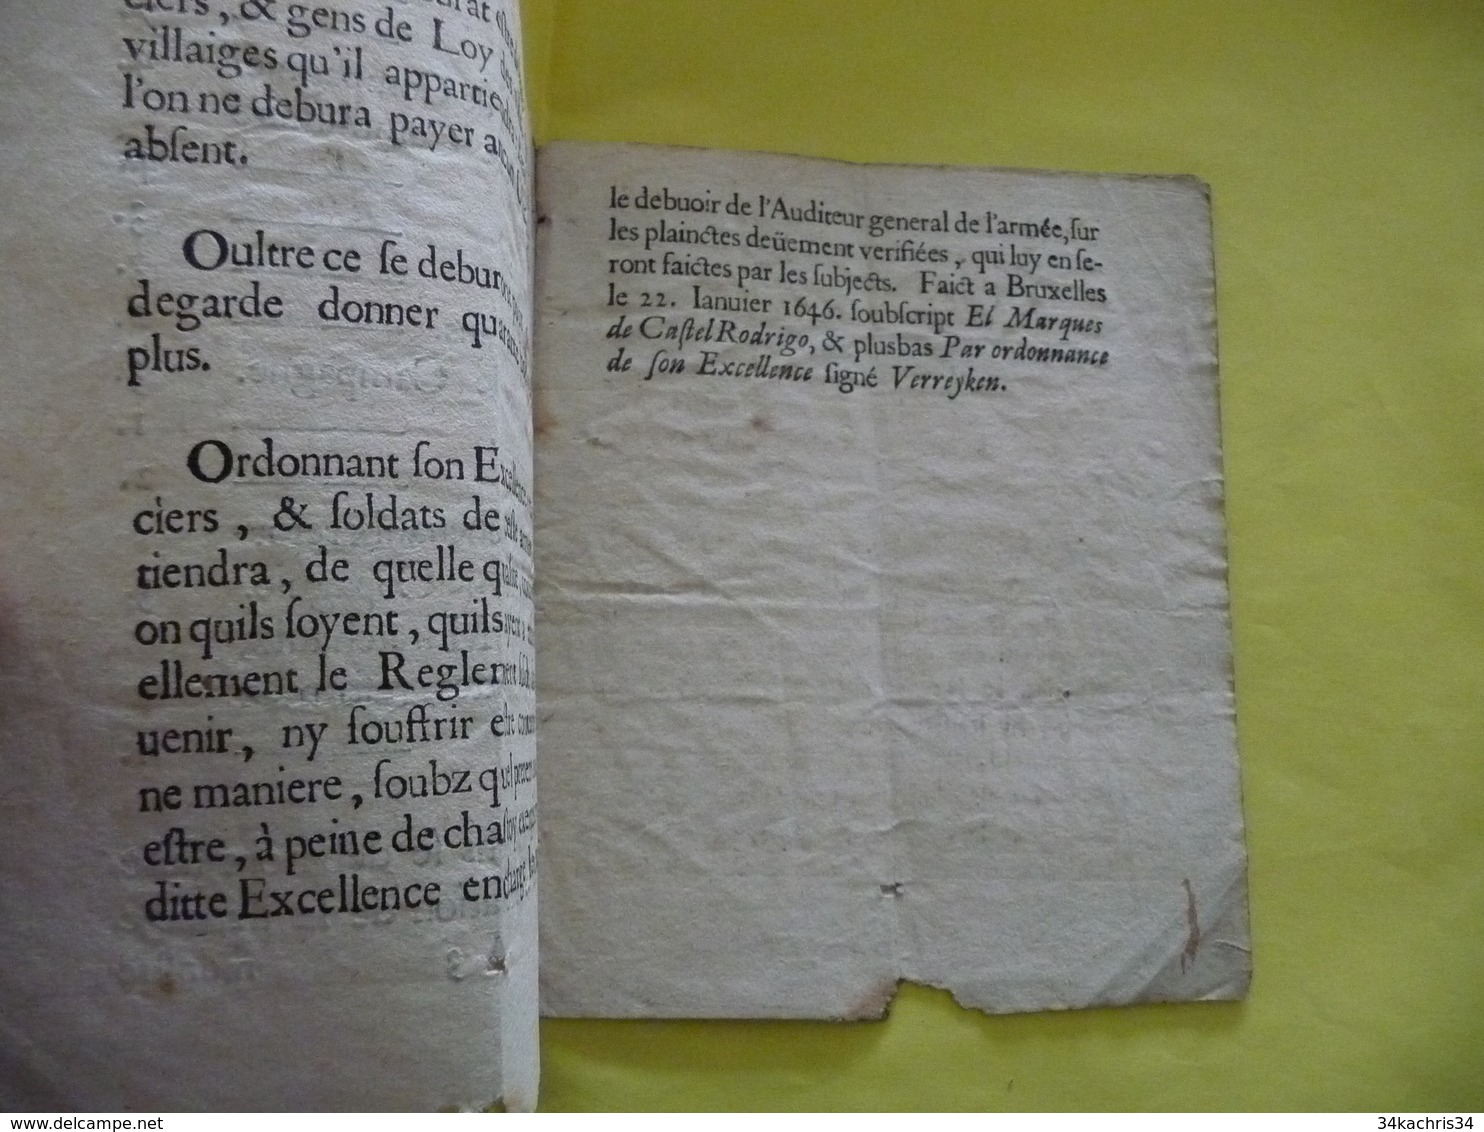 ciers, & gens de Loy des
villaiges qu'il appartie
l'on ne debura payer aucun
abſent.
Oultre ce ſe debur
degarde donner qua
plus.
Ordonnant ſon Excellence
ciers, & ſoldats de ceſte
tiendra, de quelle qualité,
on quils ſoyent, quils ayent a
ellement le Reglement
uenir, ny ſouffrir eſtre
ne maniere, ſoubz quel
eſtre, à peine de chaſtoy
ditte Excellence encharge
le debuoir de l'Auditeur general de l'armée, ſur
les plainctes deüement verifiées, qui luy en ſe-
ront faictes par les ſubjects. Faict a Bruxelles
le 22. Ianuier 1646. ſoubſcript El Marques
de Caſtel Rodrigo, & plusbas Par ordonnance
de ſon Excellence ſigné Verreyken.
www.delcampe.net
34kachris34